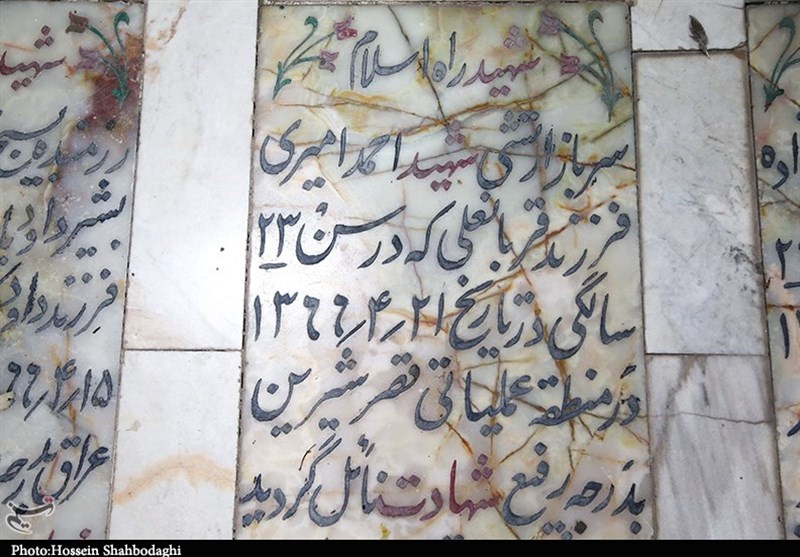 شهید راه اسلام
سرباز ارتشی شهید احمد امیری
فرزند قربانعلی که در سن ۲۳
سالگی در تاریخ ۲۱ر۴ر۱۳۶۶
در منطقه عملیاتی قصر شیرین
بدرجه رفیع شهادت نائل گردید
شهید
رزمنده بسیج
بشیر داود
فرزند داود
۱۵ر۴ر۶۶
عراق بدرجه
Photo:Hossein Shahbodaghi